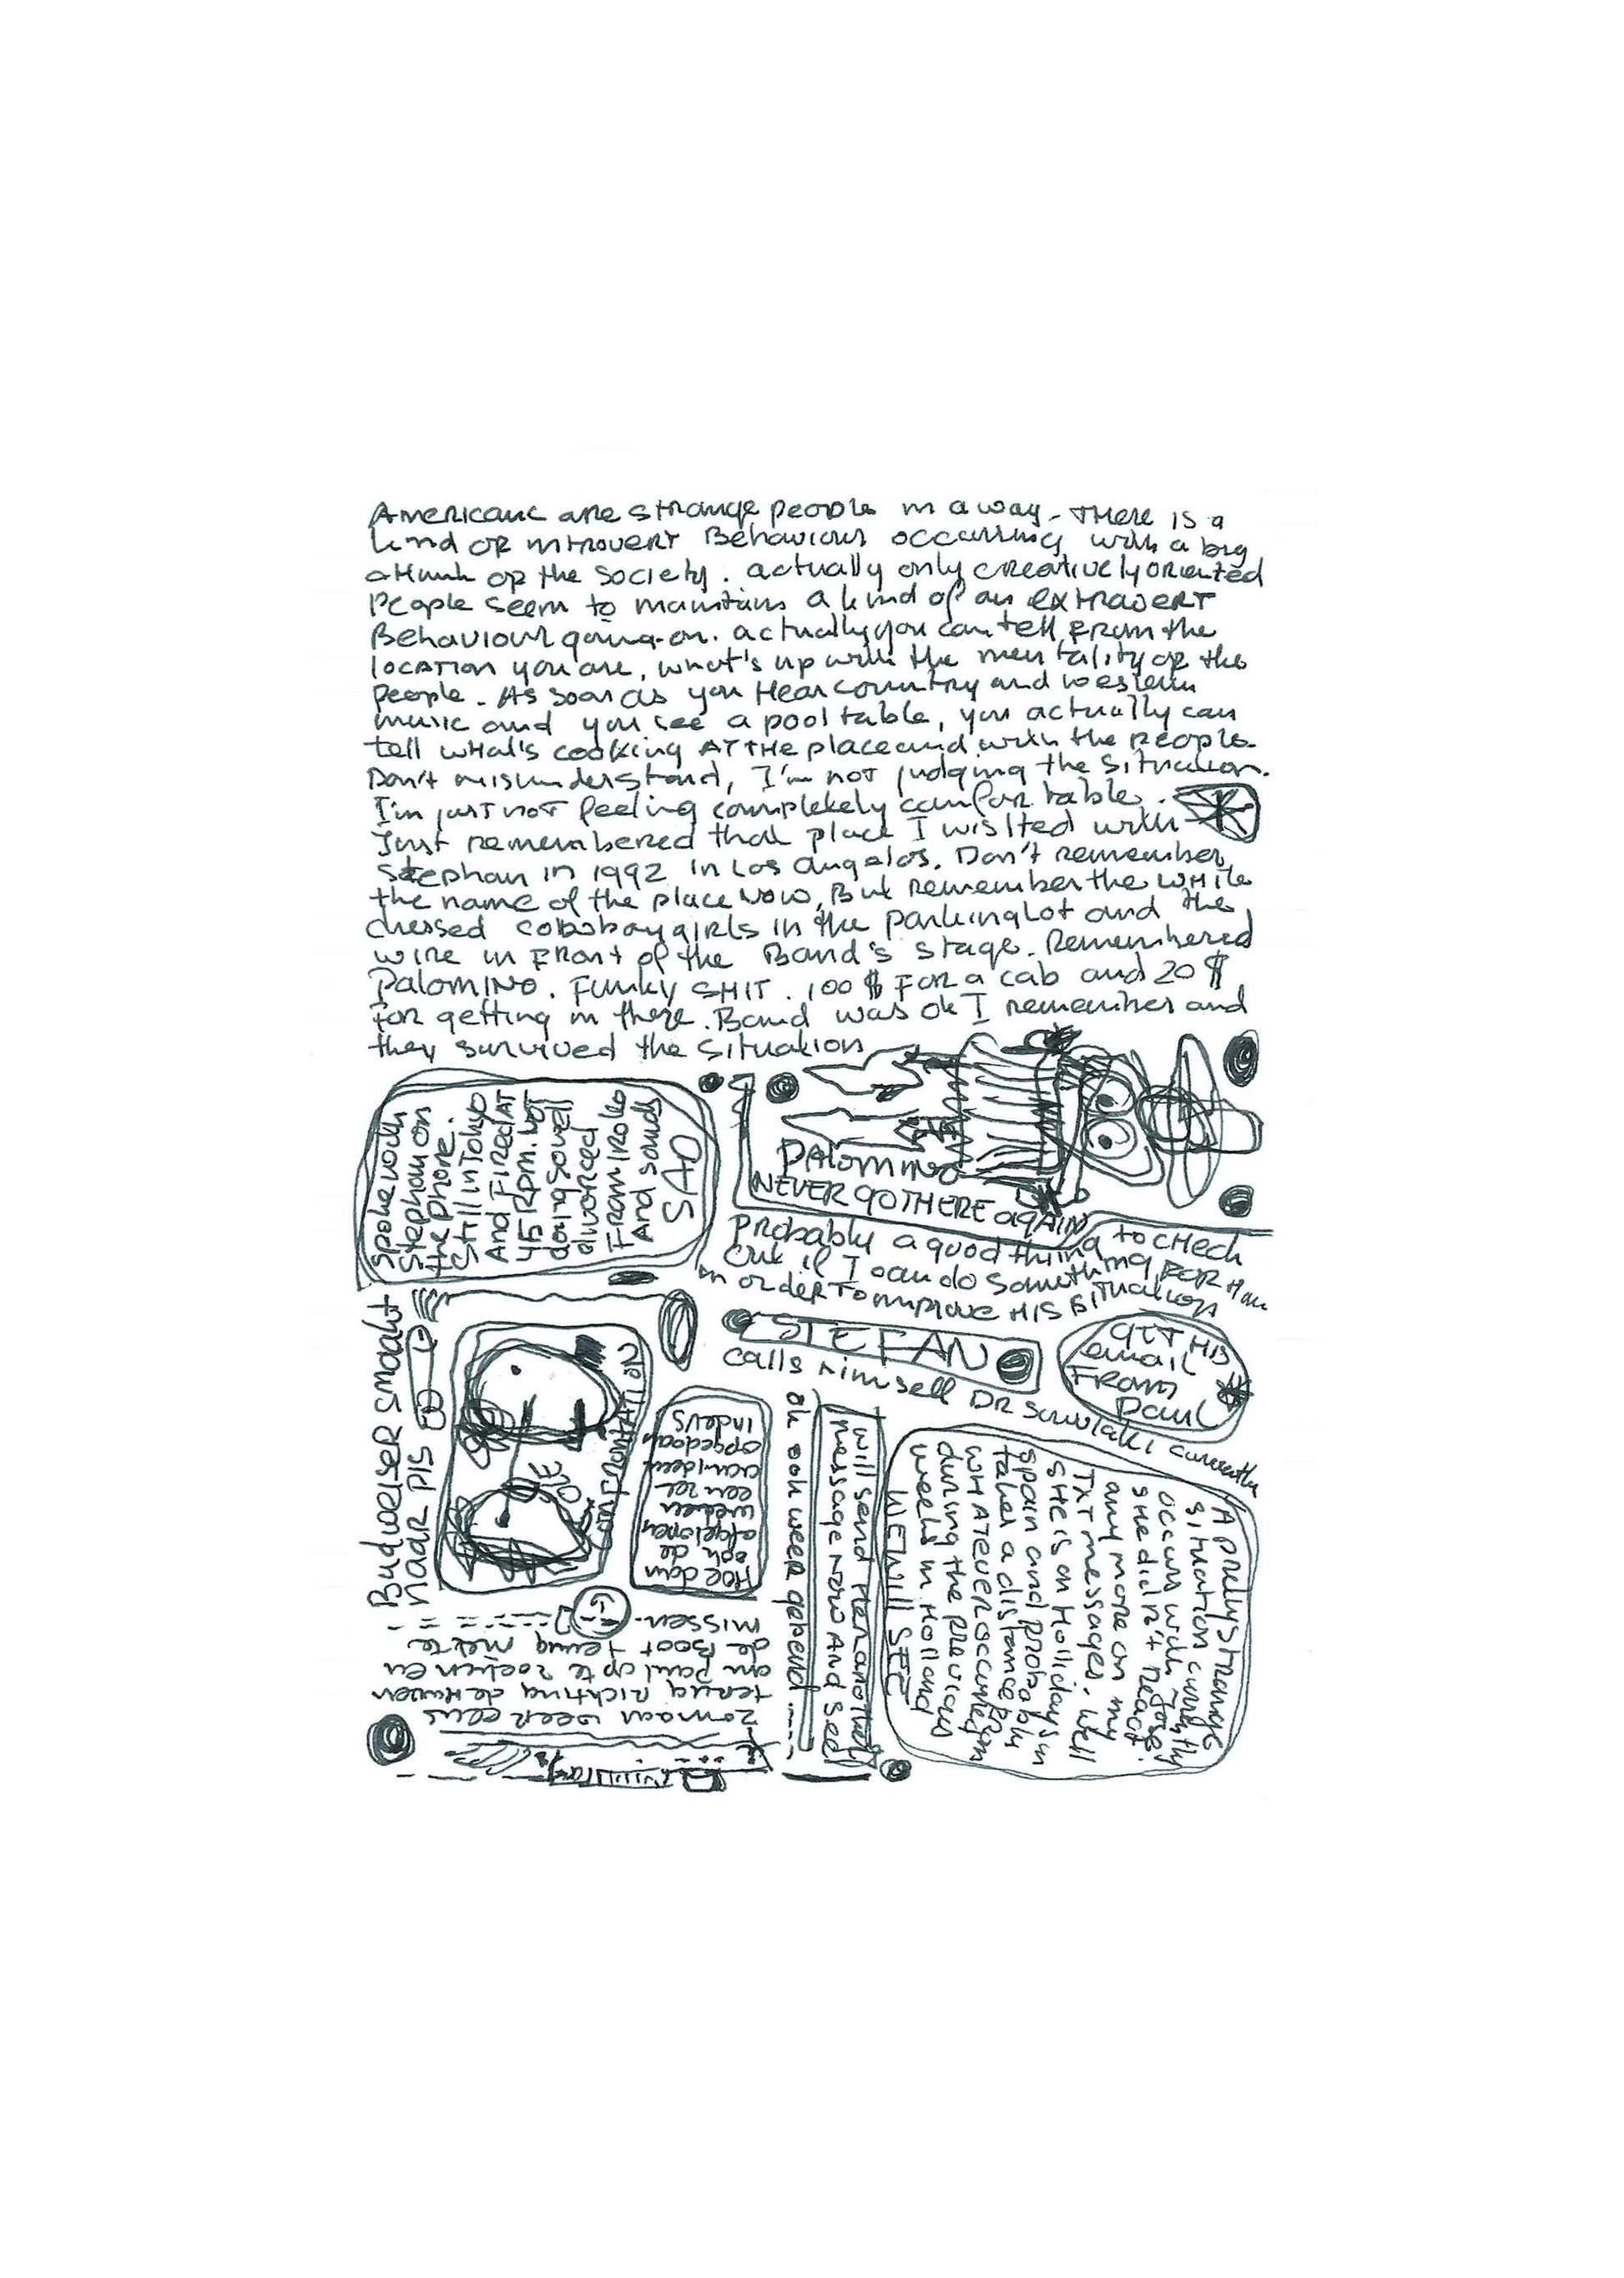 Americans are strange people in a way - THERE IS a
kind OF INTROVERT BEHAVIOUR occurring with a big
chunk of the society. actually only creatively oriented
People seem to maintain a kind of an EXTRAVERT
Behaviour going-on. actually you can tell FROM the
location you are, what's up with the mentality of the
People - As soon as you Hear country and western
music and you see a pool table, you actually can
tell what's cooking AT THE place and with the people.
Don't misunderstand, I'm not judging the situation.
I'm just not feeling completely comfortable.
Just remembered that place I visited with
Stephan in 1992 in Los Angelos. Don't remember
the name of the place now, But remember the WHITE
dressed cowboygirls in the parkinglot and the
wire in FRont of the Band's stage. Remembered
PALOMINO. FUNKY SHIT. 100 $ FOR a cab and 20 $
For getting in there. Band was ok I remember and
they survived the situation
Spoke with
Stephan on
the phone.
Still in Tokyo
And FIRED AT
45 RPM. NOT
doing so well
divorced
FROM
And sounds
SAD
PALOMINO
NEVER GO THERE agAIN
Probably a good thing to CHeck
Out if I can do something FOR Him
in ORDER TO improve HIS SITUATION
STEFAN
calls himself DR Souvlaki currently
GET HIS
email
FROM
Paul
Budweiser smaakt
naar PIS
CONFRONTATION
Hoe dan
ook de
afgelopen
weken
een zee
aan ideeen
opgedaan
indeus
ok ook weer gebeurd....
will send her another
message now And see!
A pretty strange
situation currently
occurs with
she didn't react
any more on my
TXT messages. Well
SHE is on Holliday in
Spain and probably
takes a distance from
WHATEVER occurred
during the previous
weeks in Holland
WE WILL SEE
zomaar weer eens
terug richting de Haven
om Paul op te zoeken en
de Boot terug niet te
missen.